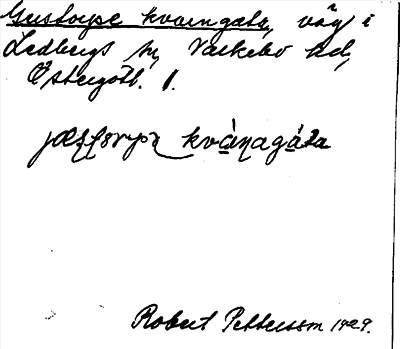 Gustorpe kvarngata, väg i
Ledbergs sn, Valkebo hd,
Östergötl. l.
kvànagáta
Robert Pettersson 1929.